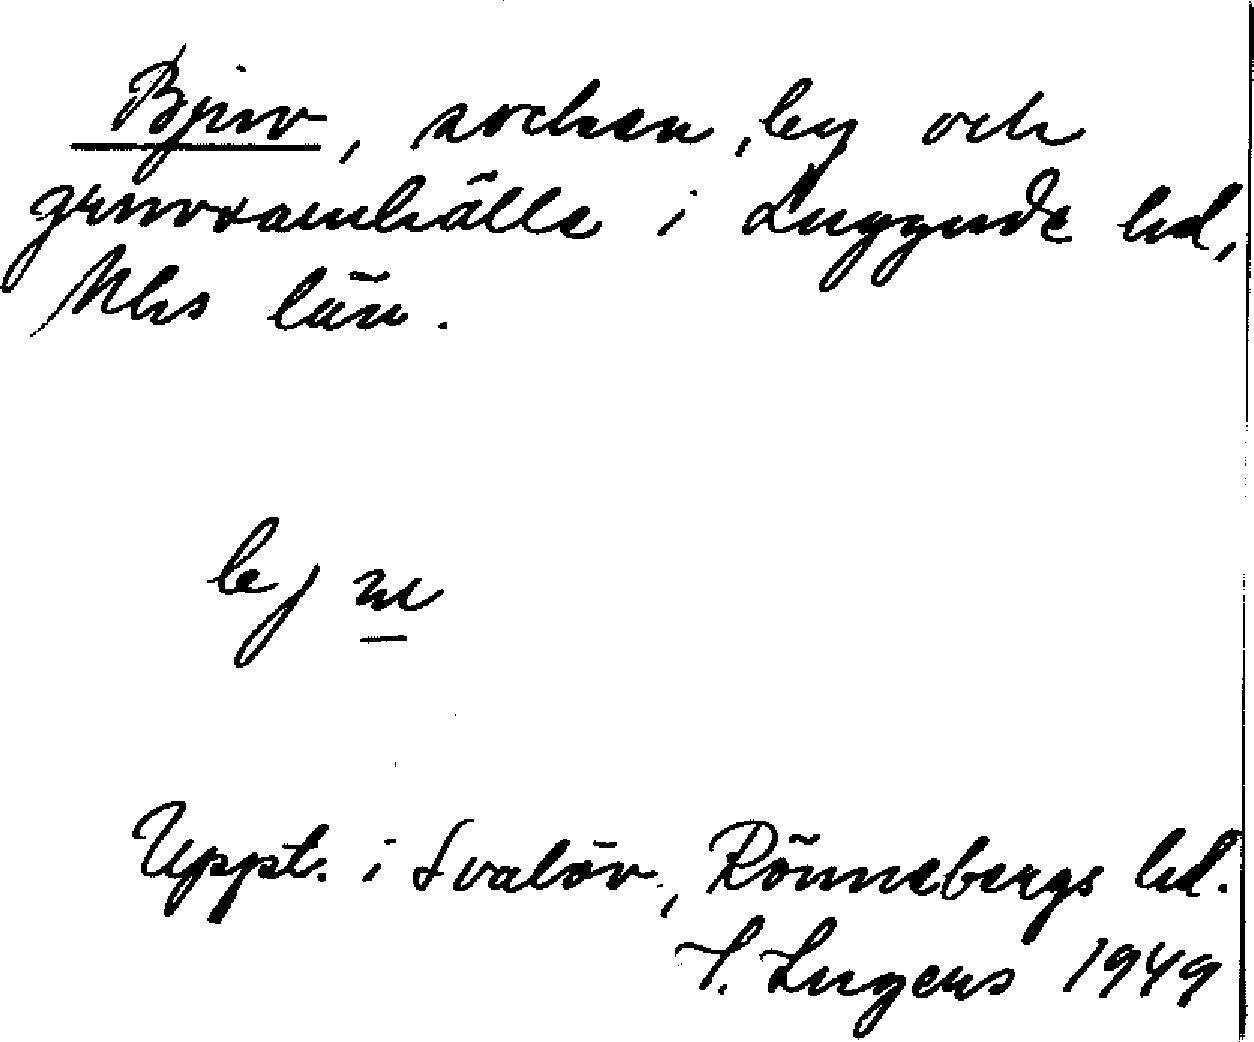 Bjuv, socken, by och
gruvsamhälle i Luggude hd,
Mhs län.
Uppt. i Svalöv, Rönnebergs hd.
S. Ingers 1949